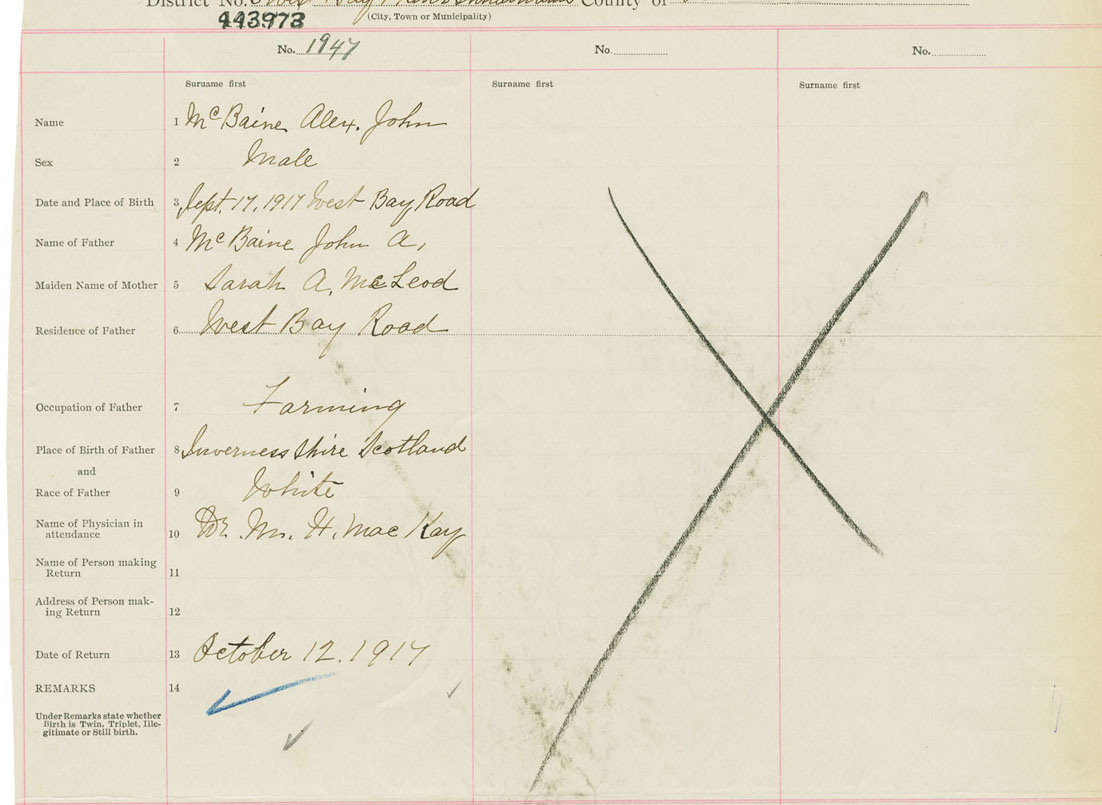 District No. County of
(City, Town or Municipality)
443973
No. 1947 No. No.
Surname first Surname first Surname first
Name 1 McBaine Alex. John
Sex 2 Male
Date and Place of Birth 3 Sept. 17, 1917 West Bay Road
Name of Father 4 McBaine John A,
Maiden Name of Mother 5 Sarah A. McLeod
Residence of Father 6 West Bay Road
Occupation of Father 7 Farming
Place of Birth of Father 8 Inverness Shire Scotland
and
Race of Father 9 White
Name of Physician in
attendance 10 Dr. Wm. H. MacKay
Name of Person making
Return 11
Address of Person mak-
ing Return 12
Date of Return 13 October 12. 1917
REMARKS 14
Under Remarks state whether
Birth is Twin, Triplet, Ille-
gitimate or Still birth.